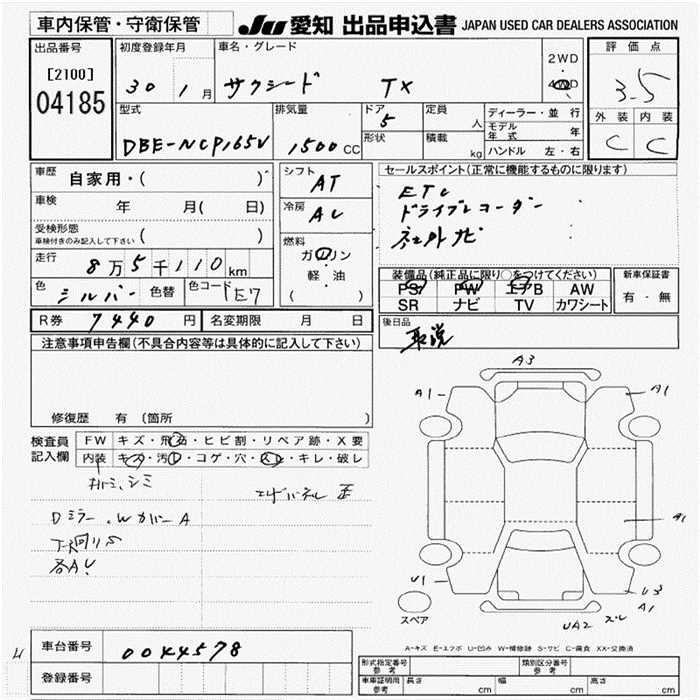 車内保管・守衛保管
JU 愛知 出品申込書 JAPAN USED CAR DEALERS ASSOCIATION
出品番号
[2100]
04185
初度登録年月
30 1月
車名・グレード
サクシード TX
2WD
・
4WD
評価点
3.5
外装 内装
C C
型式
DBE-NCP165V
排気量
1500 CC
ドア
5
形状
定員
人
積載
kg
ディーラー・並行
モデル年式 年
ハンドル 左・右
車歴
自家用・( )
車検 年 月( 日)
受検形態
車検付きのみ記入して下さい ( )
走行 8万5千110km
色 シルバー 色替 色コード 1E7
シフト
AT
冷房
AC
燃料
ガソリン
・
軽・油
( )
セールスポイント(正常に機能するものに限ります)
ETC
ドライブレコーダー
社外ナビ
装備品(純正品に限り○をつけてください)
PS PW エアB AW
SR ナビ TV カワシート
新車保証書
有・無
R券 7440円 名変期限 月 日
後日品
取説
注意事項申告欄(不具合内容等は具体的に記入して下さい)
修復歴 有 〔箇所 〕
検査員
記入欄
FW キズ・飛石・ヒビ割・リペア跡・X要
内装 キズ・汚レ・コゲ・穴・スレ・キレ・破レ
シミ
Dミラー、Wカバー A
下廻りサ
A3
A1
A1
A1
U1
U3
A1
UA2 スレ
スペア
A-キズ E-エクボ U-凹み W-補修跡 S-サビ C-腐食 XX-交換済
車台番号
0044578
登録番号
形式指定番号
参考
類別区分番号
参考
車庫証明用
参考
長さ cm 幅 cm 高さ cm